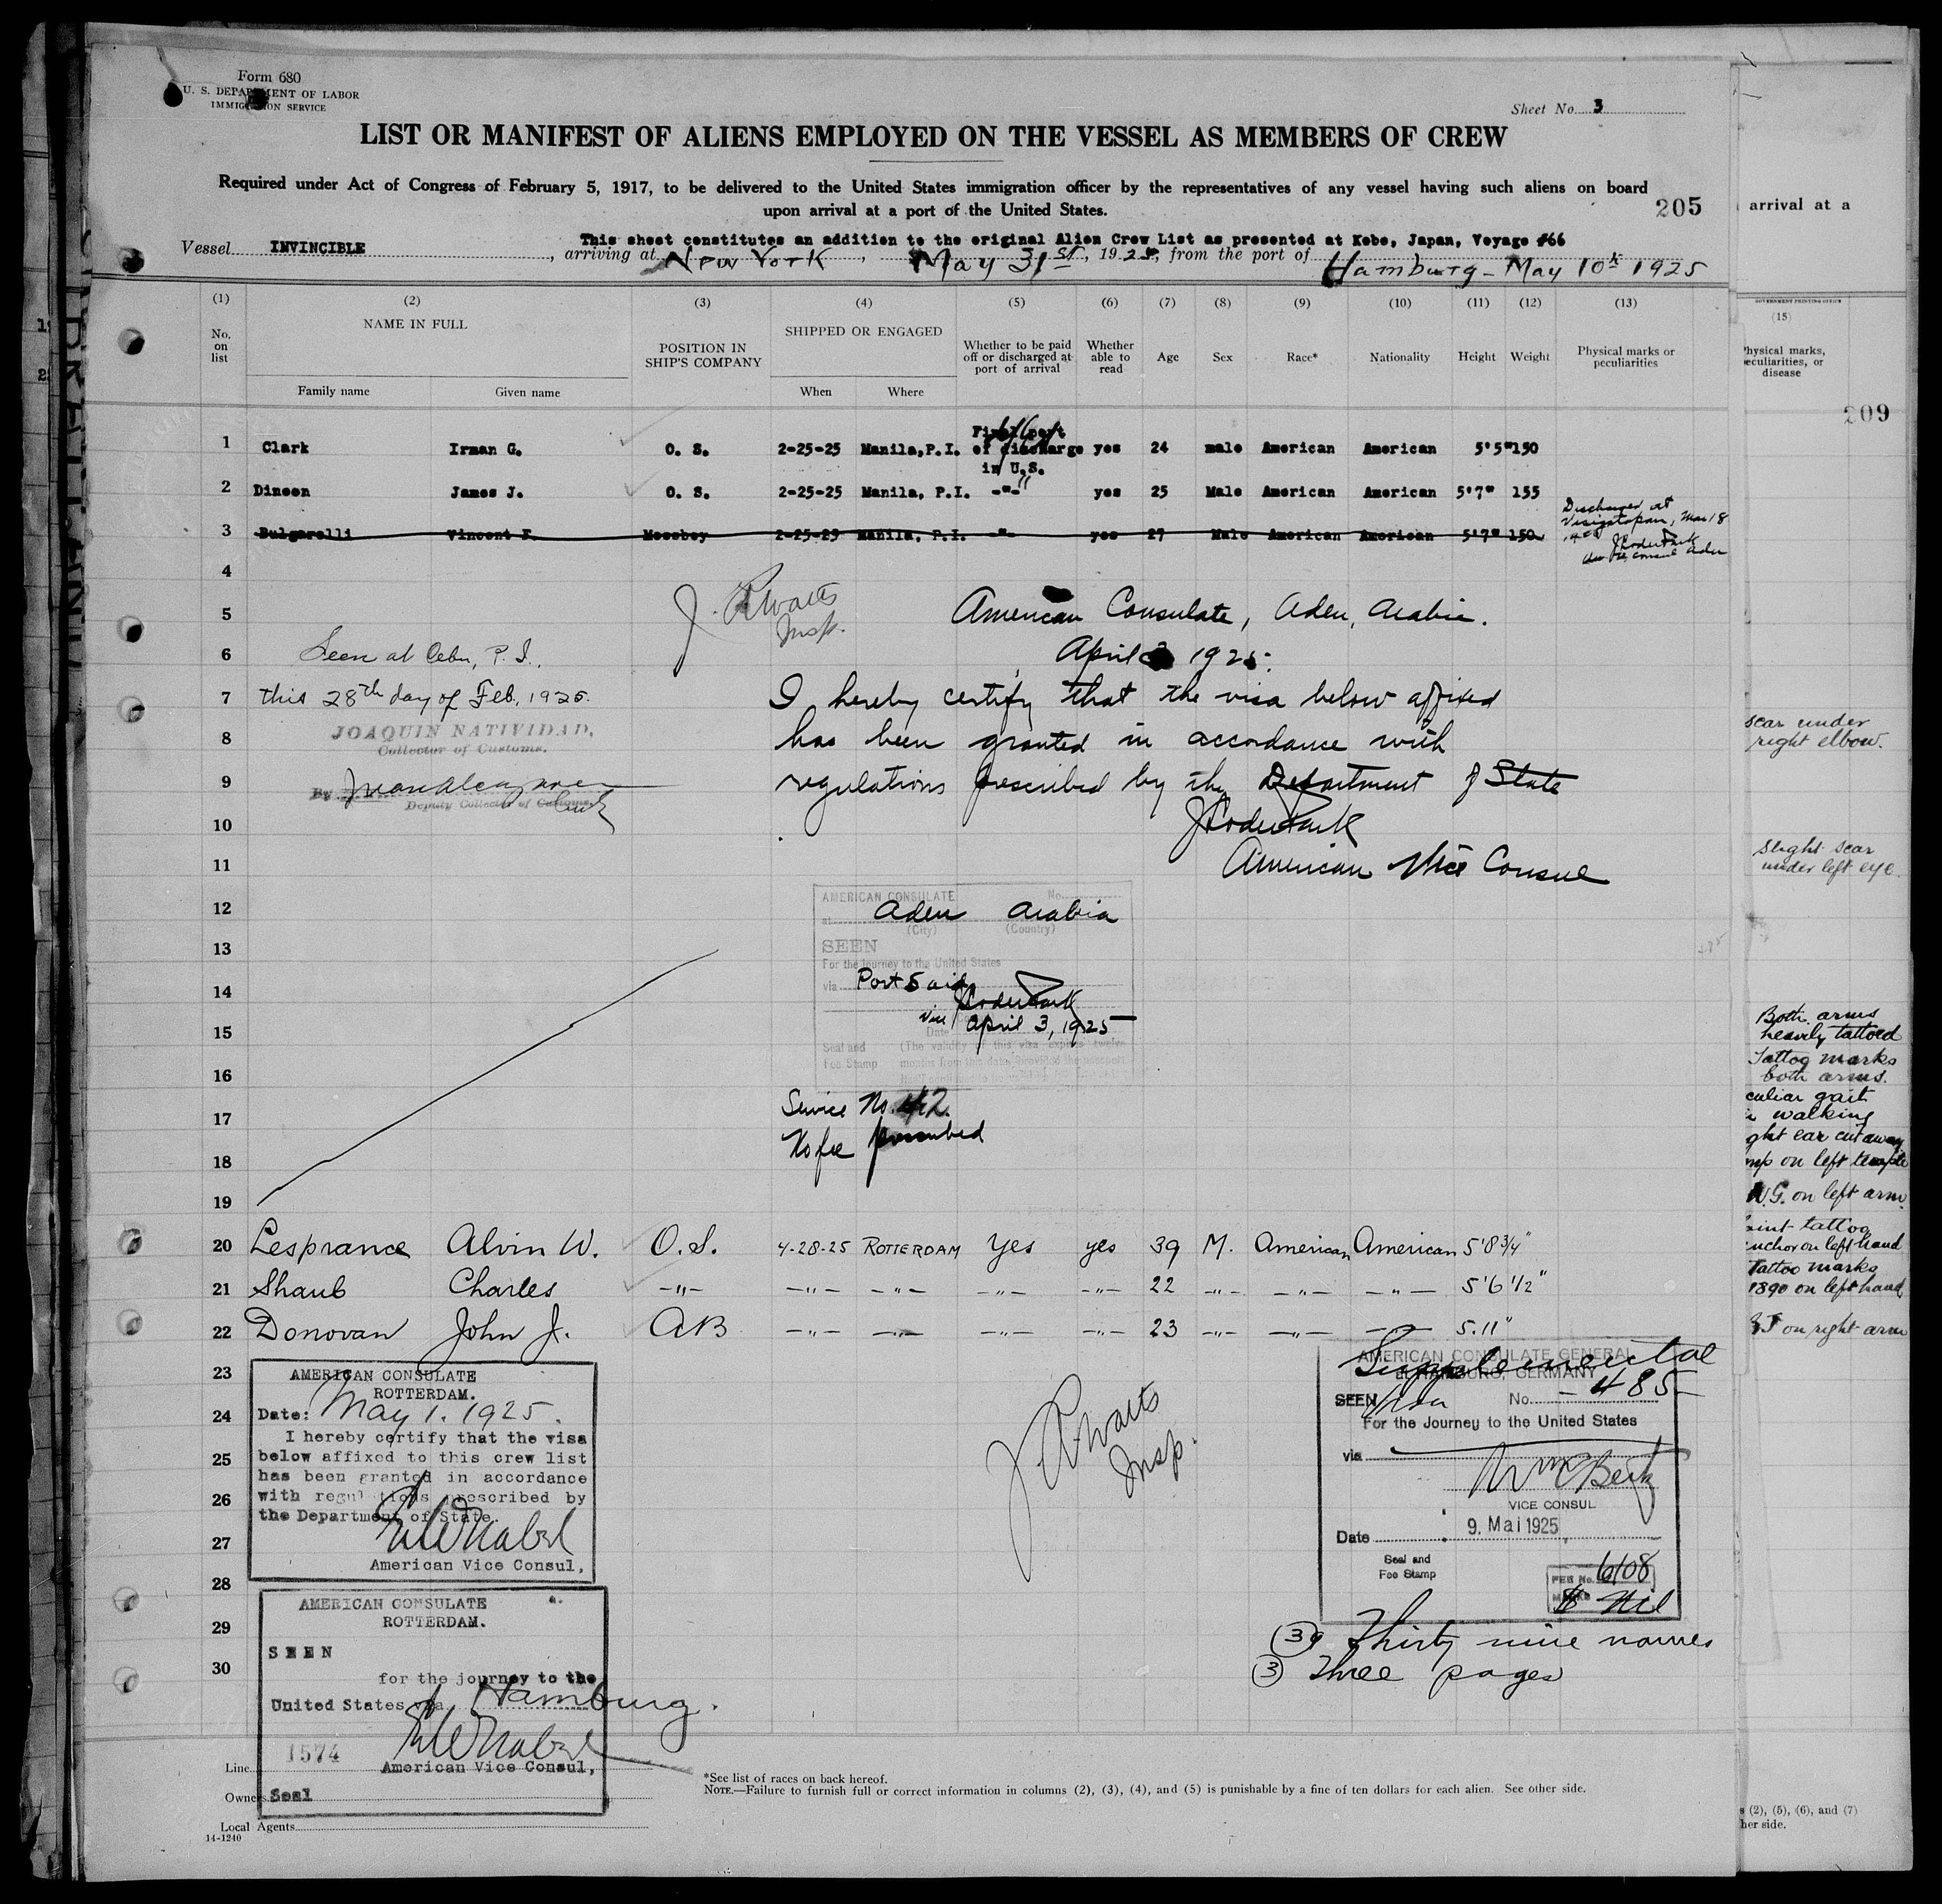 Form 680
U. S. DEPARTMENT OF LABOR
IMMIGRATION SERVICE
Sheet No. 3
LIST OR MANIFEST OF ALIENS EMPLOYED ON THE VESSEL AS MEMBERS OF CREW
Required under Act of Congress of February 5, 1917, to be delivered to the United States immigration officer by the representatives of any vessel having such aliens on board
upon arrival at a port of the United States.
205
arrival at a
This sheet constitutes an addition to the original Alien Crew List as presented at Kobe, Japan, Voyage #66
Vessel INVINCIBLE, arriving at New York, May 31st, 1925, from the port of Hamburg - May 10th 1925
(1) (2) (3) (4) (5) (6) (7) (8) (9) (10) (11) (12) (13)
GOVERNMENT PRINTING OFFICE
(15)
No. on list
NAME IN FULL
Family name Given name
POSITION IN SHIP'S COMPANY
SHIPPED OR ENGAGED
When Where
Whether to be paid off or discharged at port of arrival
Whether able to read
Age Sex Race* Nationality Height Weight
Physical marks or peculiarities
Physical marks, peculiarities, or disease
209
1 Clark Irman G. O. S. 2-25-25 Manila, P.I. Final port of discharge in U.S. yes 24 male American American 5'5" 150
2 Dineen James J. O. S. 2-25-25 Manila, P.I. -"- yes 25 Male American American 5'7" 155
3 Bulgarelli Vincent F. Messboy 2-25-25 Manila, P.I. -"- yes 27 Male American American 5'7" 150
Discharged at
Vizigatapan, Mar 18
Consul Aden
4
5
6
7
8
9
10
11
12
13
14
15
16
17
18
19
J. Watts
Insp.
Seen at Cebu, P. I.,
this 28th day of Feb, 1925.
JOAQUIN NATIVIDAD,
Collector of Customs.
By
Deputy Collector of Customs
American Consulate, Aden, Arabia.
April 3 1925.
I hereby certify that the visa below affixed
has been granted in accordance with
regulations prescribed by the Department of State
American Vice Consul
AMERICAN CONSULATE No.
at Aden Arabia
(City) (Country)
SEEN
For the journey to the United States
via Port Said
Vice
Date April 3, 1925
Seal and Fee Stamp
(The validity of this visa expires twelve
months from this date, provided the passport
Service No. 42
No fee prescribed
scar under
right elbow.
slight scar
under left eye.
Both arms
heavily tattoed
Tattoo marks
both arms.
culiar gait
walking
ght ear cut away
mp on left temple
W.G. on left arm
aint tattoo
nchor on left hand
Tattoo marks
1890 on left hand
on right arm
20 Lesprance Alvin W. O.S. 4-28-25 ROTTERDAM Yes yes 39 M. American American 5'8 3/4"
21 Shaub Charles -"- -"- -"- -"- -"- 22 -"- -"- -"- 5'6 1/2"
22 Donovan John J. AB -"- -"- -"- -"- 23 -"- -"- -"- 5.11"
23
24
25
26
27
28
29
30
AMERICAN CONSULATE
ROTTERDAM.
Date: May 1. 1925.
I hereby certify that the visa
below affixed to this crew list
has been granted in accordance
with regulations prescribed by
the Department of State.
American Vice Consul,
AMERICAN CONSULATE
ROTTERDAM.
SEEN
for the journey to the
United States via Hamburg.
1574
American Vice Consul,
Seal
J. Watts
Insp.
Supplemental
AMERICAN CONSULATE GENERAL
HAMBURG, GERMANY
SEEN Visa No. -485-
For the Journey to the United States
via
VICE CONSUL
Date 9. Mai 1925
Seal and
Fee Stamp
FEE No. 6108
Nil
(39) Thirty nine names
(3) Three pages
Line
Owners
Local Agents
14-1240
*See list of races on back hereof.
NOTE.—Failure to furnish full or correct information in columns (2), (3), (4), and (5) is punishable by a fine of ten dollars for each alien. See other side.
s (2), (5), (6), and (7)
her side.